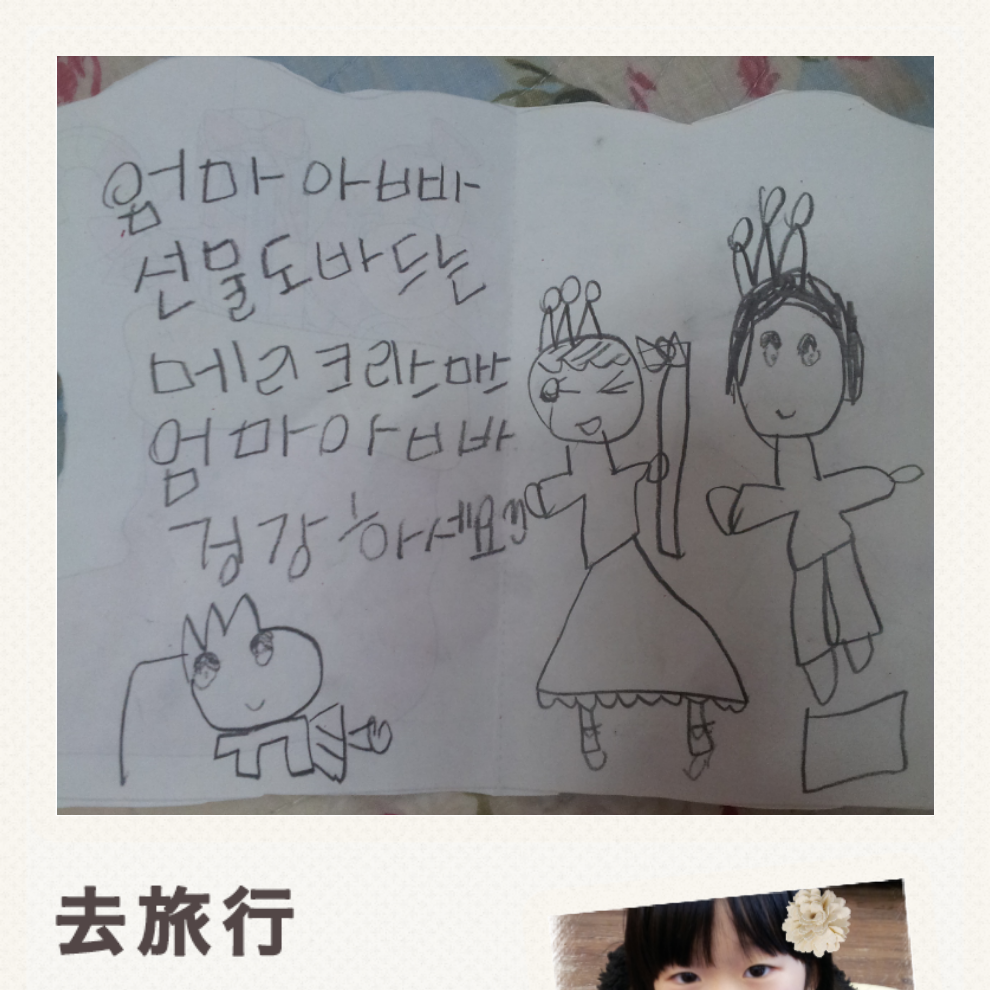 엄마 아빠
선물도바드는
메리크리스마스
엄마아빠
겅강 하세요
去旅行